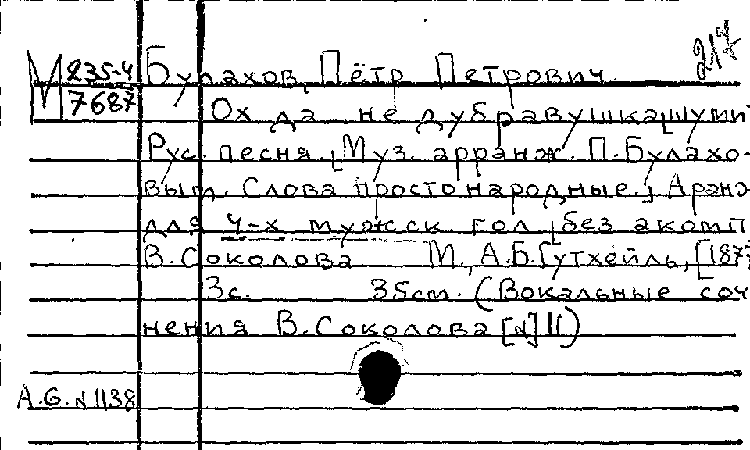 217
М 235-4 Булахов, Пётр Петрович
7687 Ох да не дубравушка шуми
Рус. песня. Муз. арранж. П. Булахо-
вым. Слова простонародные. Аранж
для 4-х мужск гол без акомп
В. Соколова М., А.Б. Гутхейль, [1877
3с. 35см. (Вокальные соч
нения В. Соколова [№] 11)
A.G. № 1138